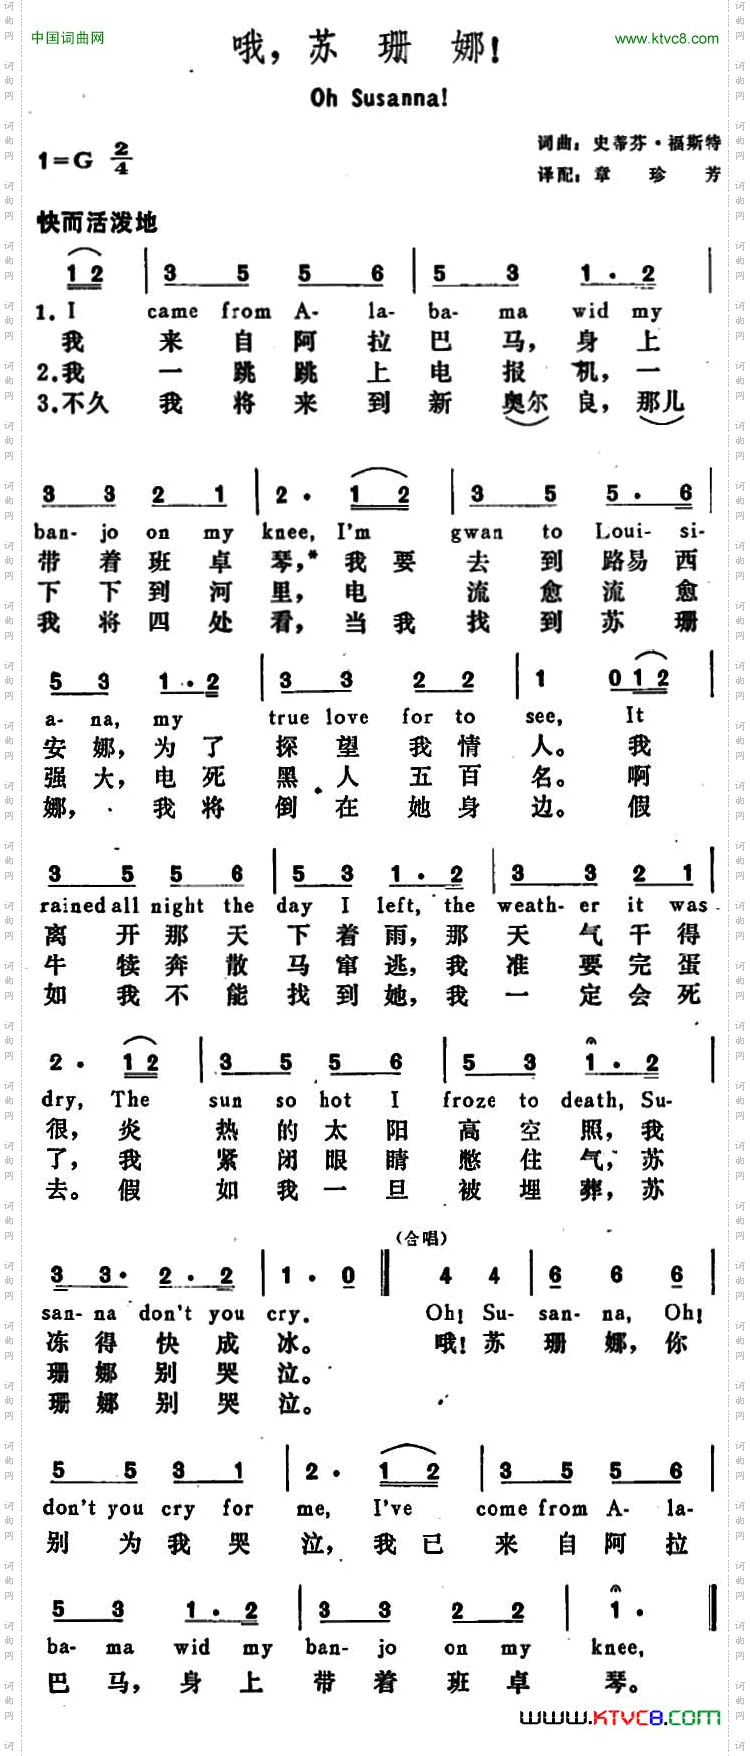 中国词曲网
www.ktvc8.com
哦，苏珊娜！
Oh Susanna!
1=G 2/4
词曲：史蒂芬·福斯特
译配：章珍芳
快而活泼地
1 2 | 3 5 5 6 | 5 3 1·2 |
1. I came from A- la- ba- ma wid my
我来自阿拉巴马，身上
2.我一跳跳上电报机，一
3.不久我将来到新奥尔良，那儿
3 3 2 1 | 2· 1 2 | 3 5 5·6 |
ban- jo on my knee, I'm gwan to Loui- si-
带着班卓琴，*我要去到路易西
下下到河里，电流愈流愈
我将四处看，当我找到苏珊
5 3 1·2 | 3 3 2 2 | 1 0 1 2 |
a- na, my true love for to see, It
安娜，为了探望我情人。我
强大，电死黑人五百名。啊
娜，我将倒在她身边。假
3 5 5 6 | 5 3 1·2 | 3 3 2 1 |
rained all night the day I left, the weath- er it was
离开那天下着雨，那天气干得
牛犊奔散马窜逃，我准要完蛋
如我不能找到她，我一定会死
2· 1 2 | 3 5 5 6 | 5 3 1·2 |
dry, The sun so hot I froze to death, Su-
很，炎热的太阳高空照，我
了，我紧闭眼睛憋住气，苏
去。假如我一旦被埋葬，苏
（合唱）
3 3· 2·2 | 1·0 ‖ 4 4 | 6 6 6 |
san- na don't you cry. Oh! Su- san- na, Oh!
冻得快成冰。哦！苏珊娜，你
珊娜别哭泣。
珊娜别哭泣。
5 5 3 1 | 2· 1 2 | 3 5 5 6 |
don't you cry for me, I've come from A- la-
别为我哭泣，我已来自阿拉
5 3 1·2 | 3 3 2 2 | 1· ‖
ba- ma wid my ban- jo on my knee,
巴马，身上带着班卓琴。
www.KTVC8.com